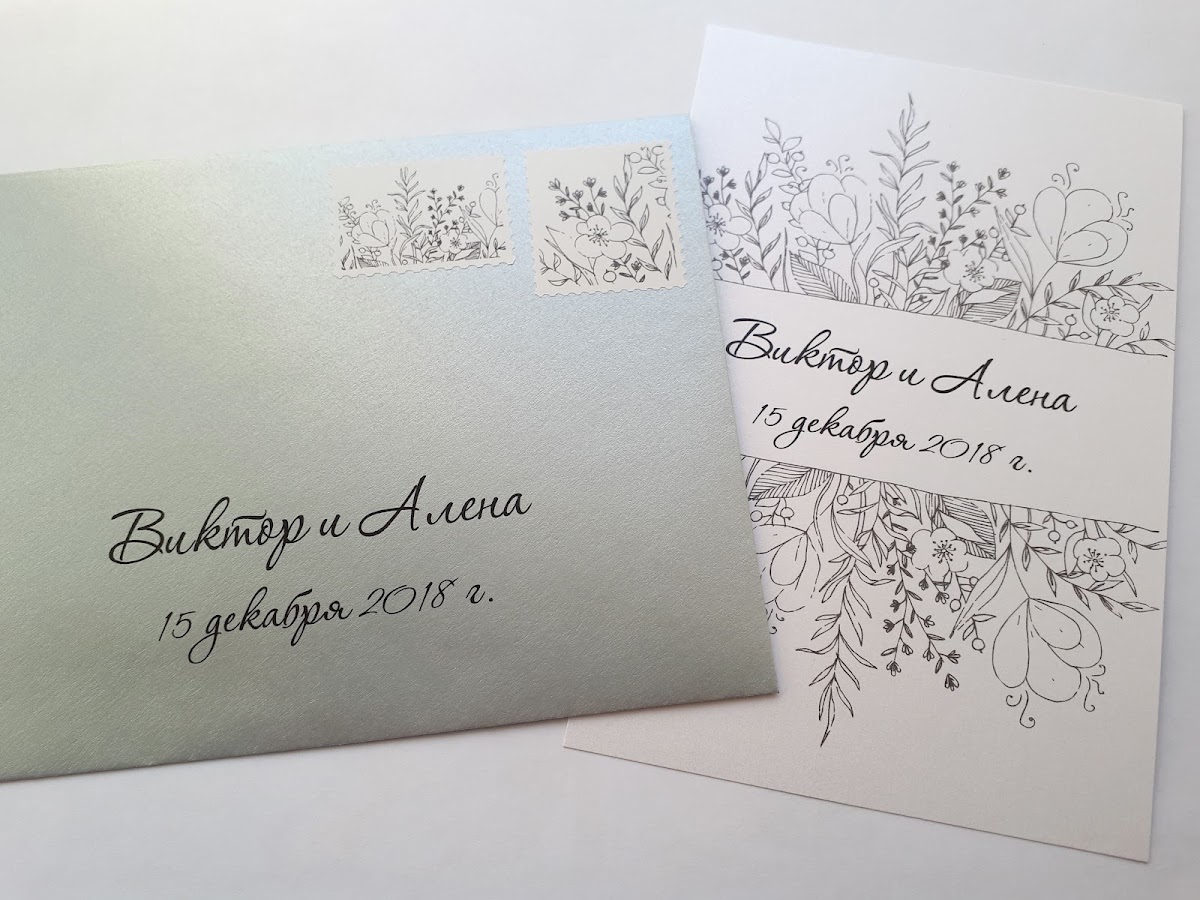 Виктор и Алена
15 декабря 2018 г.
Виктор и Алена
15 декабря 2018 г.